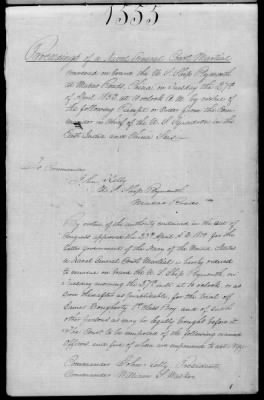 1555
Proceedings of a Naval General Court Martial
convened on board the U S Ship Plymouth
at Macao Roads, China on Tuesday the 27th
of April 1850 at 10 oclock A M by virtue of
the following Precept or Order from the Com-
mander in Chief of the U S Squadron in the
East India and China Seas.
To Commander
John Kelly
U S Ship Plymouth
Macao Roads
By virtue of the authority contained in the act of
Congress approved the 23rd April A D 1800 for the
better government of the Navy of the United States
a Naval General Court Martial is hereby ordered
to convene on board the U S Ship Plymouth on
Tuesday morning the 27th inst at 10 oclock or as
soon thereafter as practicable, for the trial of
Daugherty 1st Class Boy and of such
other persons as may be legally brought before it
The Court to be composed of the following named
Officers and five of whom are empowered to act Viz
Commander John Kelly President
Commander William